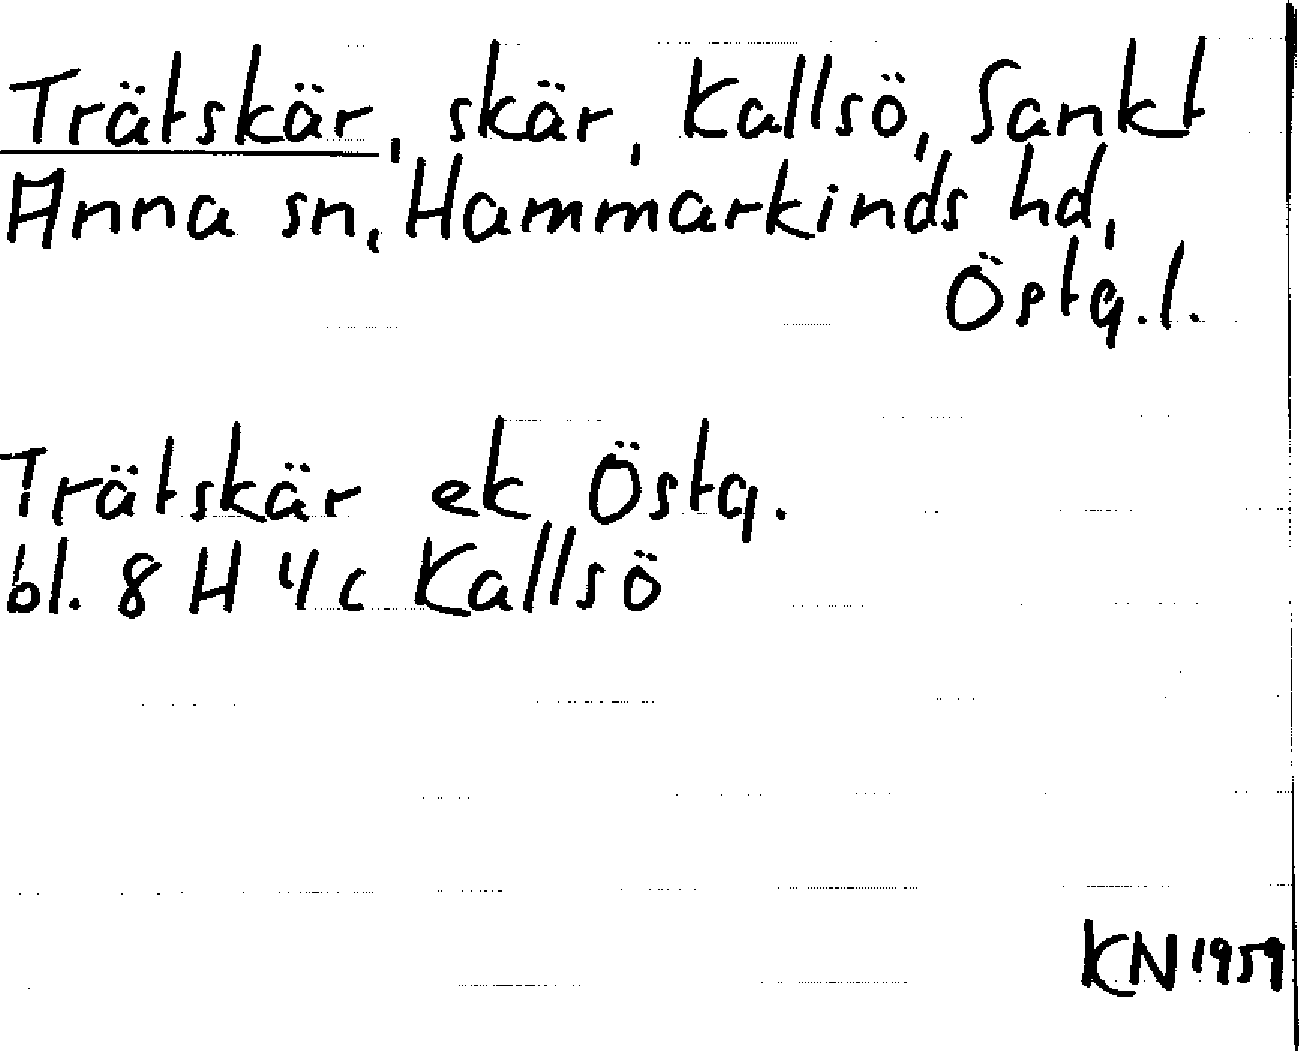 Trätskär, skär, Kallsö, Sankt
Anna sn, Hammarkinds hd,
Östg.l.
Trätskär ek Östg.
bl. 8 H 4c Kallsö
KN 1959